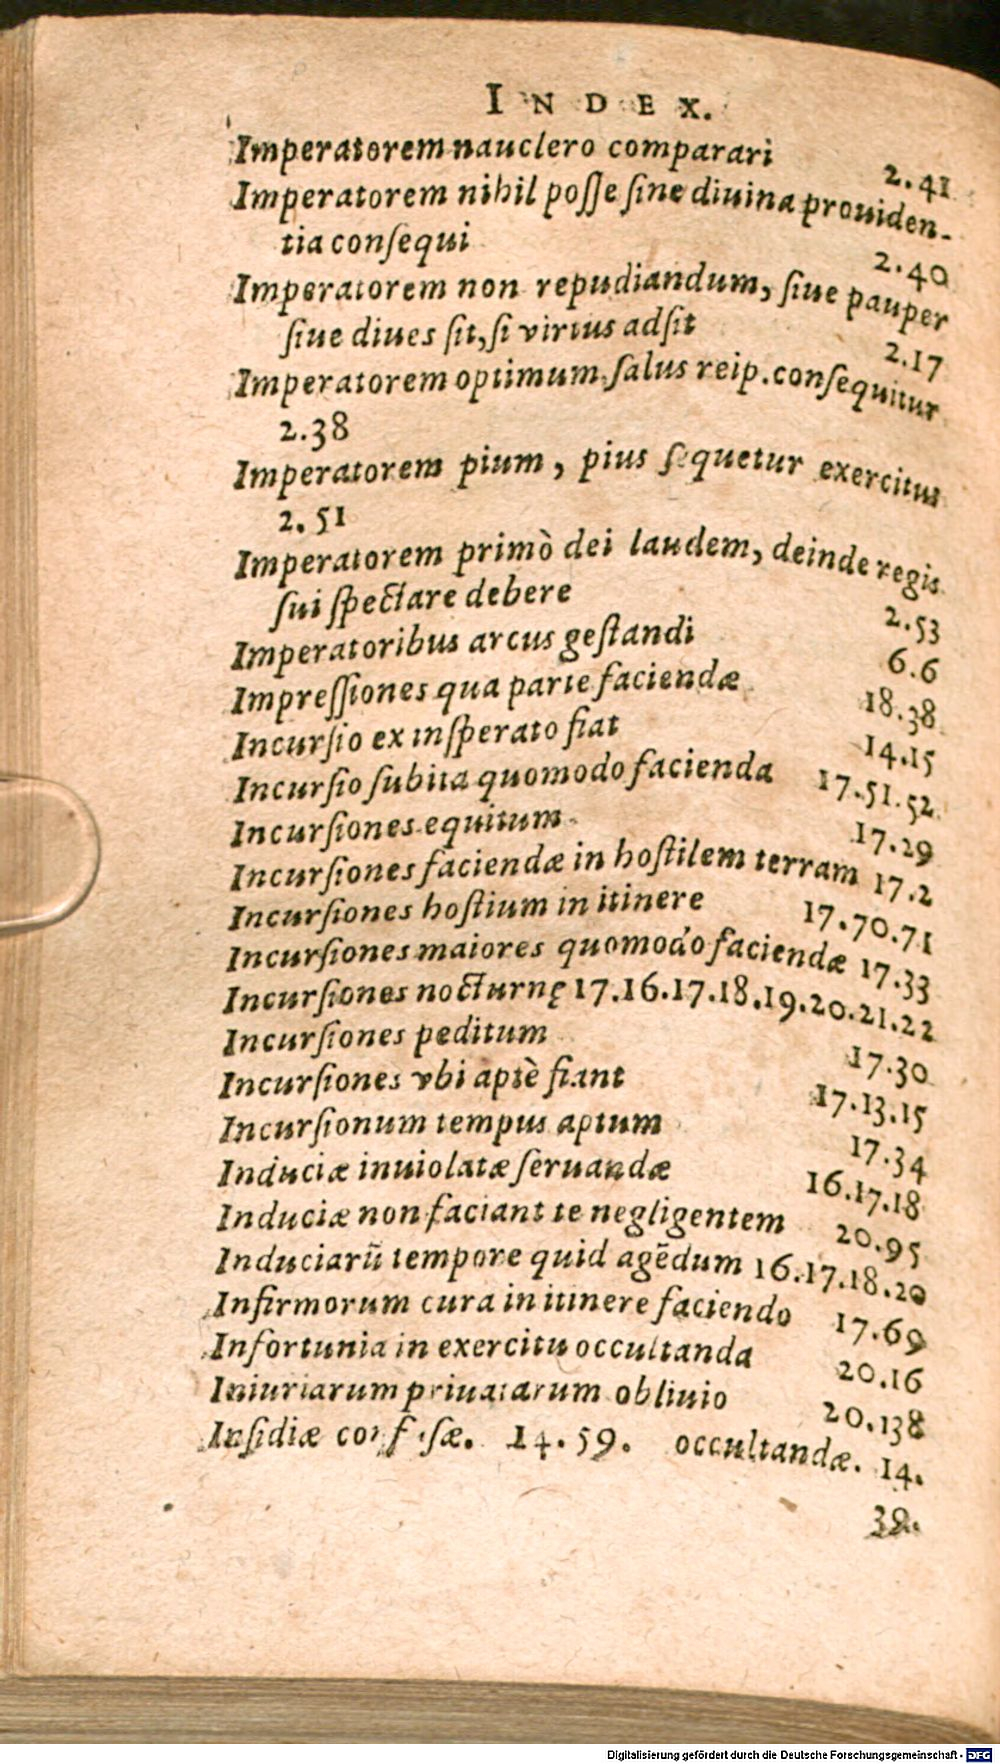 INDEX.
Imperatorem nauclero comparari 2.41
Imperatorem nihil poſſe ſine diuina prouiden-
tia conſequi 2.40
Imperatorem non repudiandum, ſiue pauper
ſiue diues ſit, ſi virtus adſit 2.17
Imperatorem optimum ſalus reip. conſequitur
2.38
Imperatorem pium, pius ſequetur exercitus
2.51
Imperatorem primò dei laudem, deinde regis
ſui ſpectare debere 2.53
Imperatoribus arcus geſtandi 6.6
Impreſſiones qua parte faciendæ 18.38
Incurſio ex inſperato fiat 14.15
Incurſio ſubita quomodo facienda 17.51.52
Incurſiones equitum 17.29
Incurſiones faciendæ in hoſtilem terram 17.2
Incurſiones hoſtium in itinere 17.70.71
Incurſiones maiores quomodo faciendæ 17.33
Incurſiones nocturnę 17.16.17.18.19.20.21.22
Incurſiones peditum 17.30
Incurſiones vbi aptè fiant 17.13.15
Incurſionum tempus aptum 17.34
Induciæ inuiolatæ ſeruandæ 16.17.18
Induciæ non faciant te negligentem 20.95
Induciarũ tempore quid agẽdum 16.17.18.20
Infirmorum cura in itinere faciendo 17.69
Infortunia in exercitu occultanda 20.16
Iniuriarum priuatarum obliuio 20.138
Inſidiæ 14.59. occultandæ. 14.
Digitalisierung gefördert durch die Deutsche Forschungsgemeinschaft - DFG